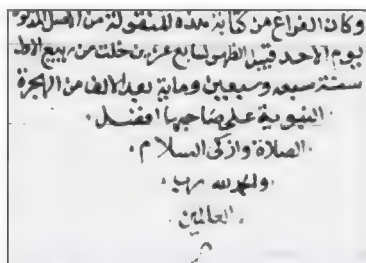 وكان الفراغ من كتابة هذه المنقولة من الاصل المذكور
يوم الاحد قبيل الظهر لسابع عشرين خلت من ربيع الاول
سنة سبعه وسبعين وماية بعد الالف من الهجرة
النبوية على صاحبها افضل
الصلاة وازكى السلام
والحمد لله رب
العالمين
م